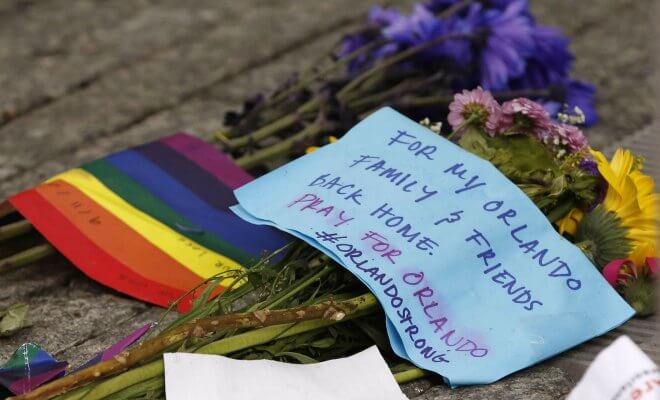 FOR MY ORLANDO
FAMILY & FRIENDS
BACK HOME.
PRAY FOR ORLANDO
#ORLANDOSTRONG